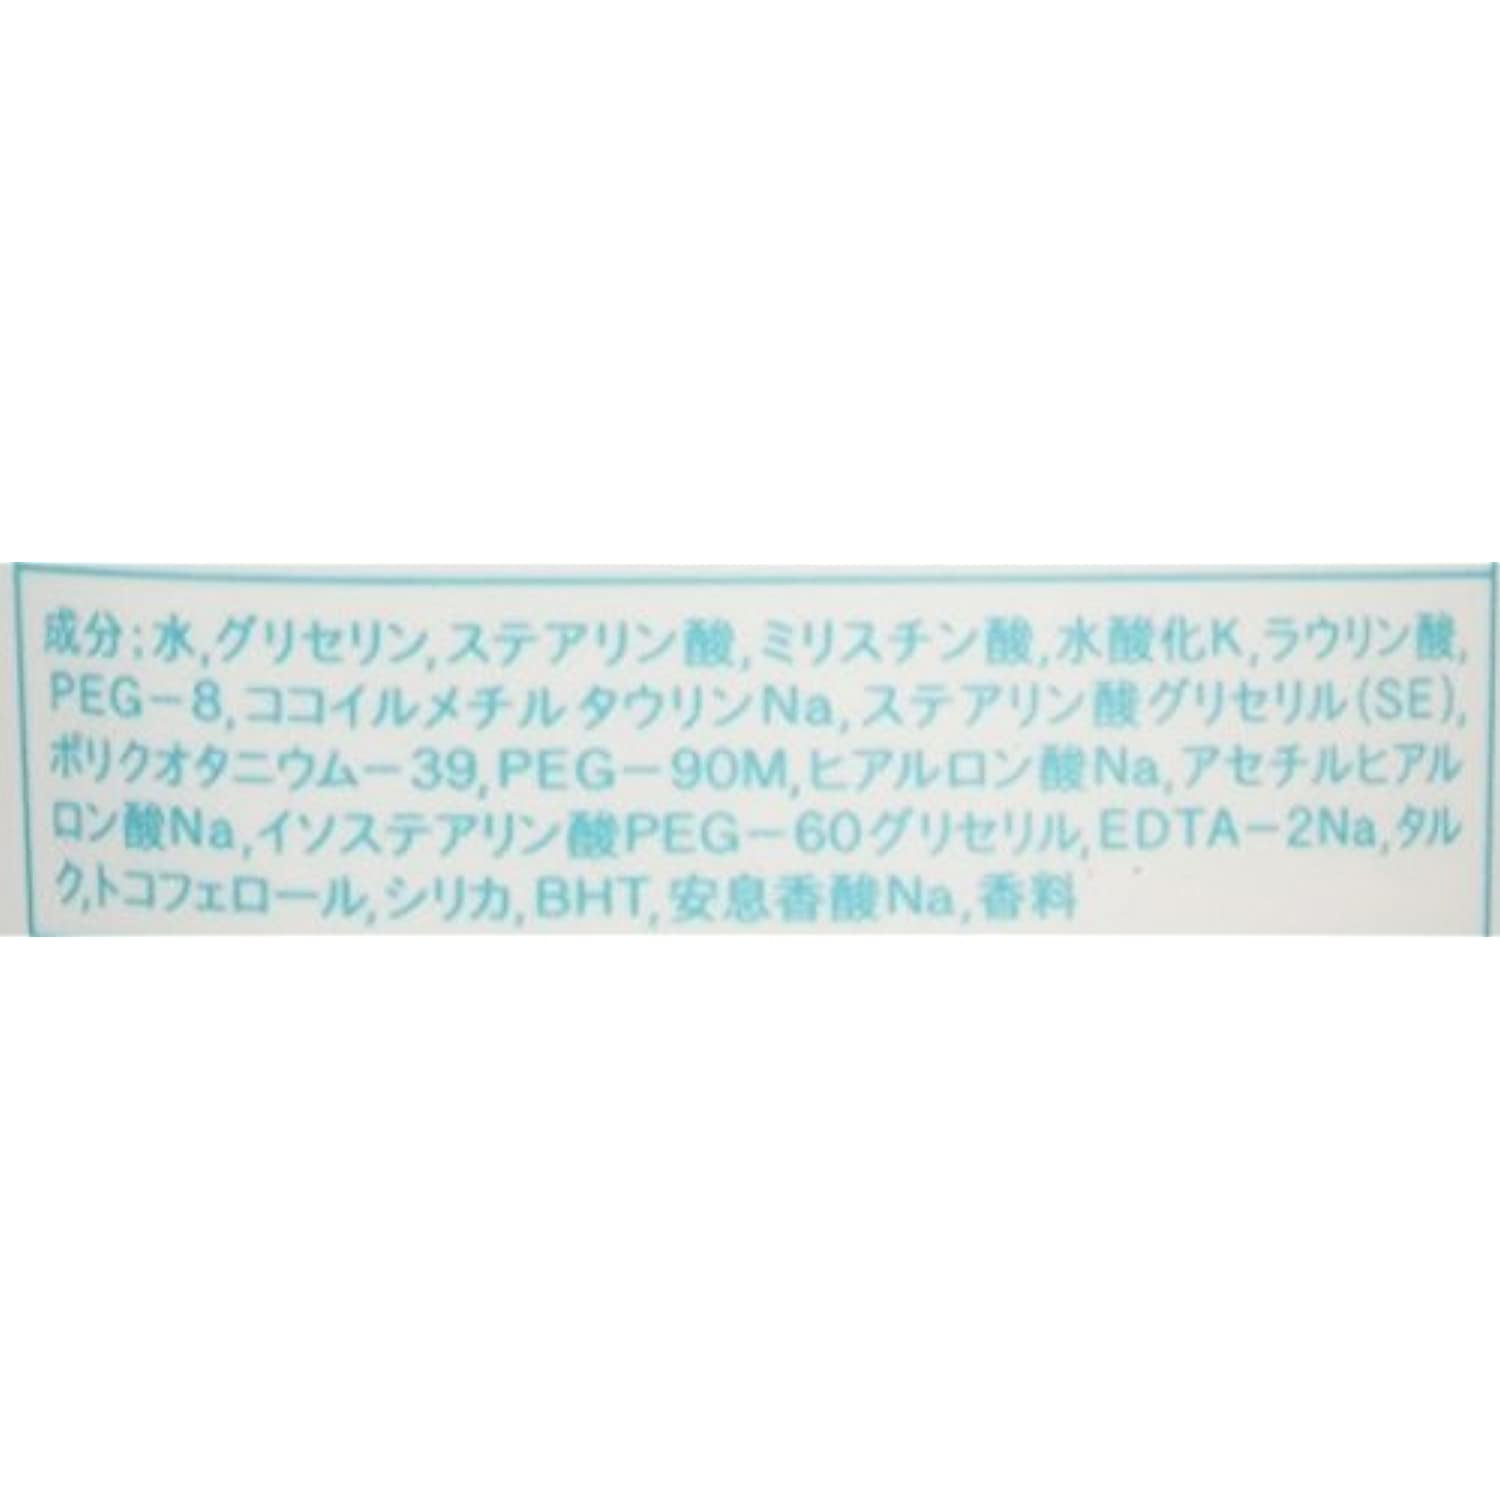 成分:水,グリセリン,ステアリン酸,ミリスチン酸,水酸化K,ラウリン酸,
PEG-8,ココイルメチルタウリンNa,ステアリン酸グリセリル(SE),
ポリクオタニウム-39,PEG-90M,ヒアルロン酸Na,アセチルヒアル
ロン酸Na,イソステアリン酸PEG-60グリセリル,EDTA-2Na,タル
ク,トコフェロール,シリカ,BHT,安息香酸Na,香料